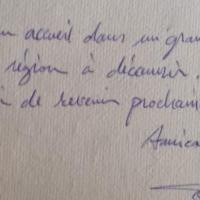 accueil dans un gran
région à découvrir.
de revenir prochain
Amica